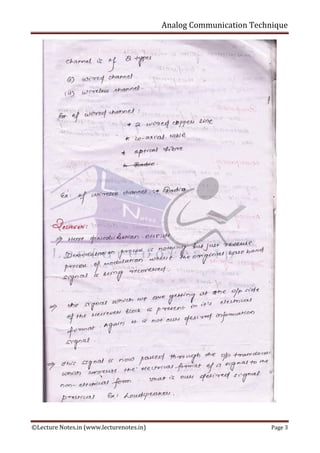 Analog Communication Technique
Channel is of 2 types
(i) wired channel.
(ii) wireless channel.
Ex of wired channel:
→ 2 wired copper line
→ co-axial cable
→ optical fibre
→ Radio.
Ex: of wireless channel → Radio
Notes
Receiver:
→ Here demodulation occurs.
1. Demodulation process is nothing but just reverse
process of modulation where the original base band
signal is being recovered.
→ The signal which we are getting at the o/p side
of the receiver block is present in it's electrical
format. Again it is not our desired information
signal.
→ This signal is now passed through the o/p transducer
which converts the electrical format of a signal to the
non-electrical form what is our desired signal
practical Ex: Loudspeaker.
©Lecture Notes.in (www.lecturenotes.in)
Page 3